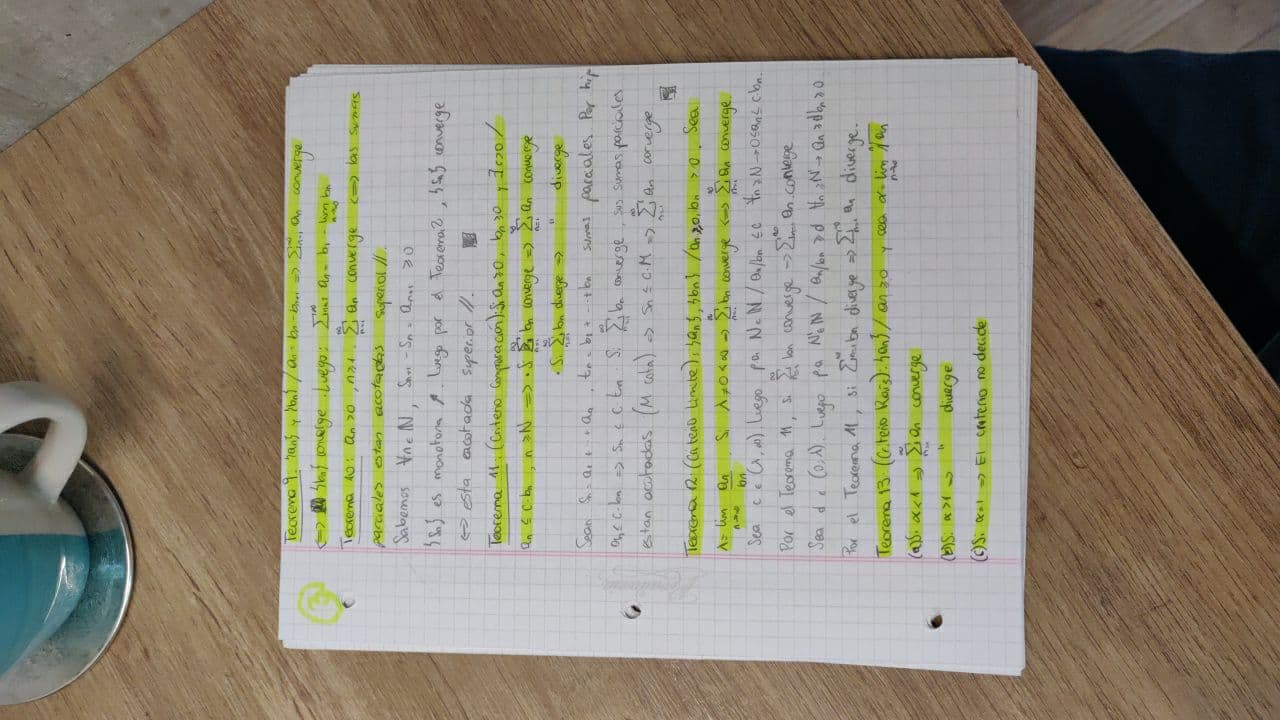 3
Teorema 9: {an} y {bn} / an = bn - bn+1 => ∑_{n=1}^∞ an converge
<=> {bn} converge. Luego: ∑_{n=1}^∞ an = b1 - lim_{n→∞} bn
Teorema 10: an ≥ 0, n ≥ 1. ∑_{n=1}^∞ an converge <=> las sumas
parciales estan acotadas superior //.
Sabemos ∀n ∈ N, Sn+1 - Sn = an+1 ≥ 0
{Sn} es monotona ↗. Luego por el Teorema 2, {Sn} converge
<=> esta acotada superior //.
Teorema 11: (Criterio Comparación): Si an ≥ 0, bn ≥ 0 y ∃c>0 /
an ≤ c·bn, n ≥ N => · Si ∑_{n=1}^∞ bn converge => ∑_{n=1}^∞ an converge
· Si ∑_{n=1}^∞ bn diverge => " diverge
Sean Sn = a1 + ... + an, tn = b1 + ... + bn sumas parciales. Por hip
an ≤ c·bn => Sn ≤ c·tn. Si ∑_{n=1}^∞ bn converge, sus sumas parciales
estan acotadas (M cota) => Sn ≤ c·M => ∑_{n=1}^∞ an converge
Teorema 12: (Criterio Limite): {an}, {bn} / an ≥ 0, bn > 0. Sea
λ = lim_{n→∞} an/bn. Si λ ≠ 0 < ∞ => ∑_{n=1}^∞ bn converge <=> ∑_{n=1}^∞ an converge.
Sea c ∈ (λ, ∞). Luego pa N ∈ N / an/bn ≤ c ∀n ≥ N → 0 ≤ an ≤ c·bn.
Por el Teorema 11, si ∑_{n=1}^∞ bn converge => ∑_{n=1}^∞ an converge
Sea d ∈ (0, λ). Luego pa N' ∈ N / an/bn ≥ d ∀n ≥ N' → an ≥ d bn ≥ 0.
Por el Teorema 11, si ∑_{n=1}^∞ bn diverge => ∑_{n=1}^∞ an diverge.
Teorema 13: (Criterio Raíz): {an} / an ≥ 0 y sea α = lim_{n→∞} ⁿ√an
(a) Si α < 1 => ∑_{n=1}^∞ an converge
(b) Si α > 1 => " diverge
(c) Si α = 1 => El criterio no decide